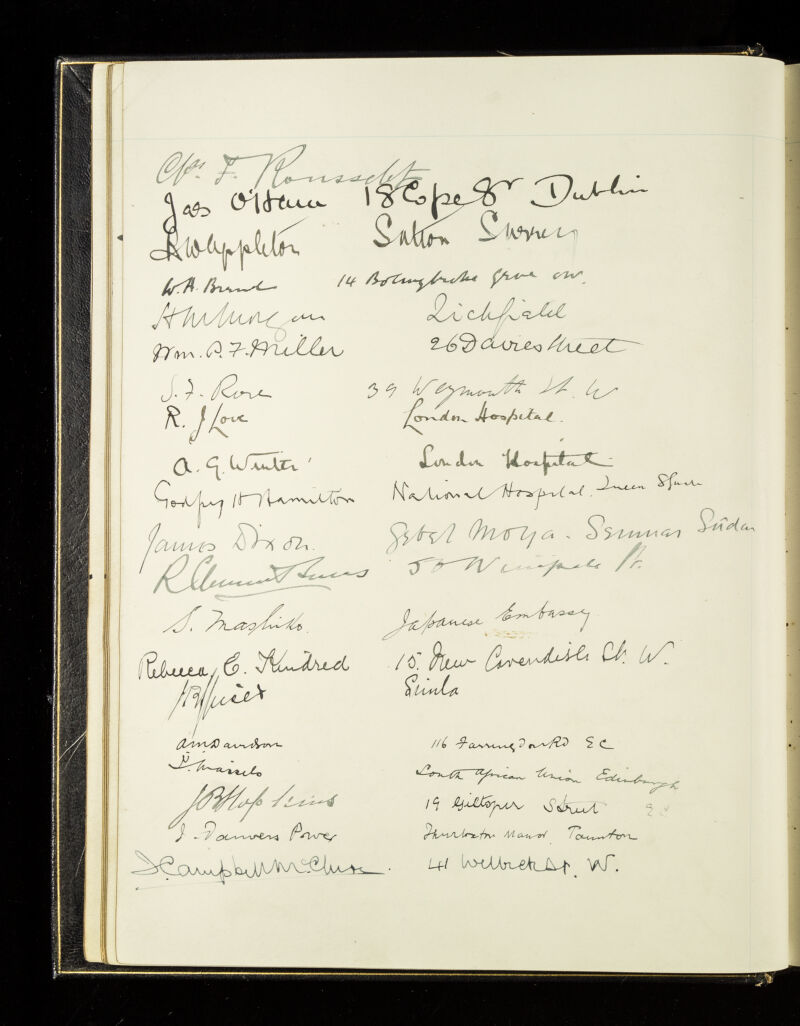 Chs. F. Rousselet
Jas O'Hara 18 Cope St Dublin
Appleton Sutton Surrey
W. H. 14 Bolingbroke grove SW.
Lichfield
Wm. P. F. Miller 26 Davies Street
S. F. Rose 39 Weymouth St. W
R. J Love London Hospital.
A. G. Winter London Hospital
Godfrey H Hamilton National Hospital. Queen Square
James Dixon. Gebel Moya - Sennar Sudan
R Clement Lucas 50 Wimpole St.
S. Mashiko. Japanese Embassy
Rebecca C. Kindred 15. New Cavendish St. W.
Simla
A M Davidson 116 Farringdon Rd EC
South African Union Edinburgh
J B Hopkins 19 Giltspur Street EC
J. Danvers Power Manor, Taunton
J. Campbell McClure. 41 Welbeck St. W.